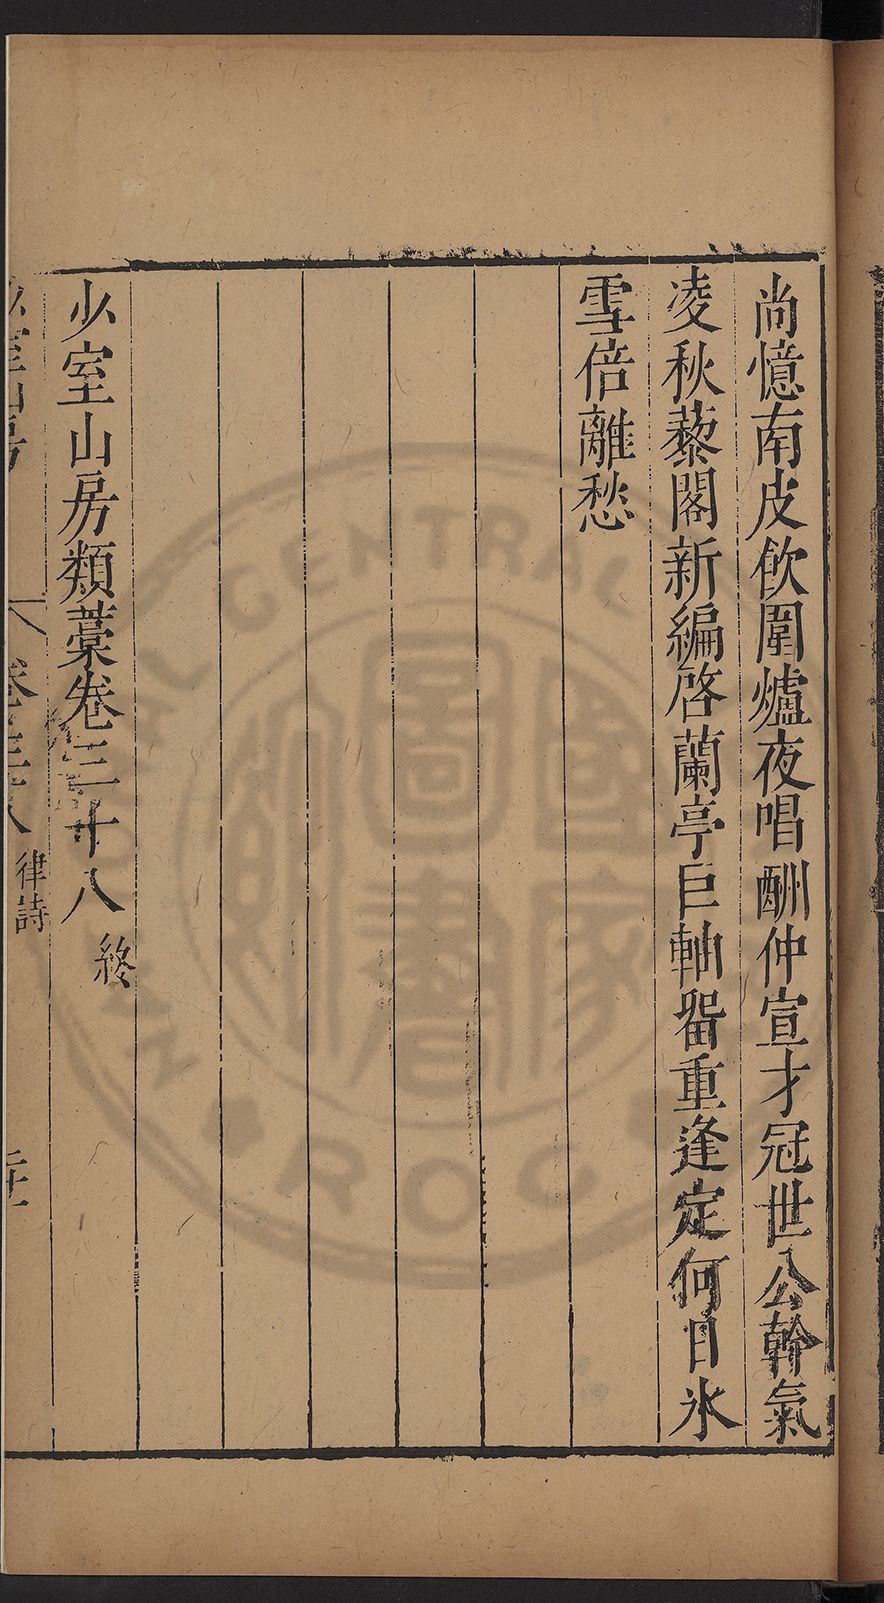 尚憶南皮飲圍爐夜唱酬仲宣才冠世公幹氣
凌秋藜閣新編啓蘭亭巨軸畱重逢定何日氷
雪倍離愁
少室山房類藁卷三十八 終
少室山房 卷三十八 律詩
CENTRAL
ROC
國家圖書館